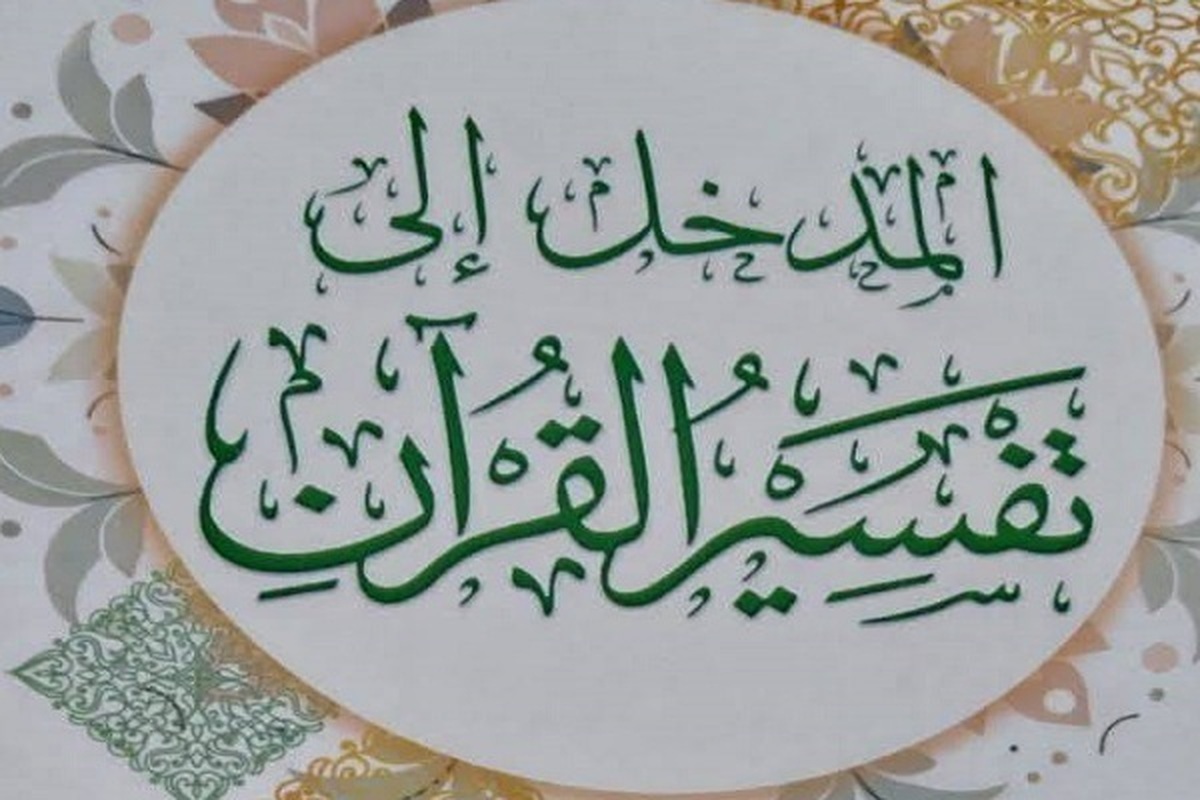 المدخل إلى
تَفْسِيرُ الْقُرْآنِ